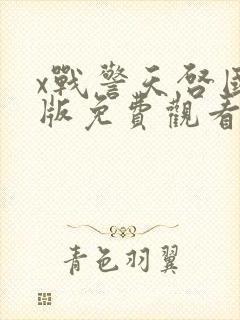 x戰警天啓國
版免費觀看
青色羽翼